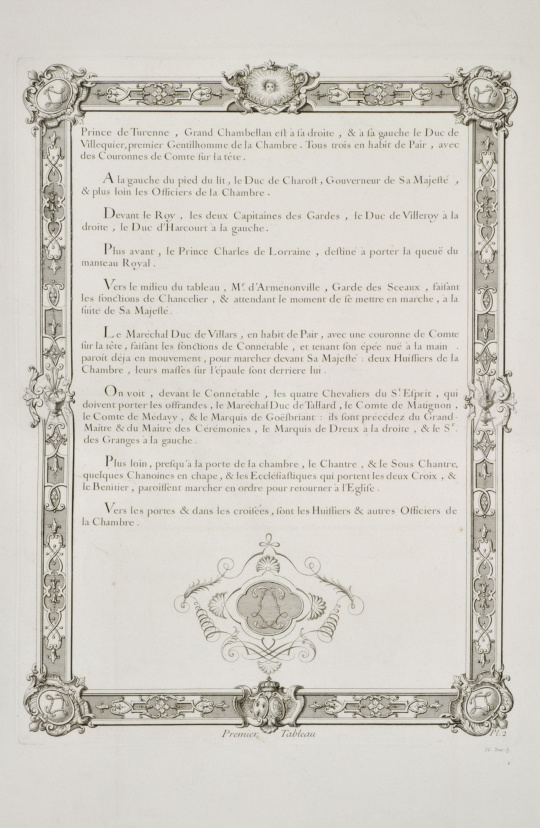 Prince de Turenne , Grand Chambellan est a sa droite , & a sa gauche le Duc de
Villequier, premier Gentilhomme de la Chambre . Tous trois en habit de Pair , avec
des Couronnes de Comte sur la tête .
A la gauche du pied du lit , le Duc de Charost , Gouverneur de Sa Majesté ,
& plus loin les Officiers de la Chambre .
Devant le Roy , les deux Capitaines des Gardes , le Duc de Villeroy a la
droite , le Duc d'Harcourt à la gauche .
Plus avant , le Prince Charles de Lorraine , destiné a porter la queuë du
manteau Royal .
Vers le milieu du tableau , Mr. d'Armenonville , Garde des Sceaux , faisant
les fonctions de Chancelier , & attendant le moment de se mettre en marche , a la
suite de Sa Majesté .
Le Maréchal Duc de Villars , en habit de Pair , avec une couronne de Comte
sur la tête , faisant les fonctions de Connetable , et tenant son épée nuë a la main .
paroit deja en mouvement , pour marcher devant Sa Majesté : deux Huissiers de la
Chambre , leurs masses sur l'epaule sont derriere lui .
On voit , devant le Connétable , les quatre Chevaliers du St. Esprit , qui
doivent porter les offrandes , le Maréchal Duc de Tallard , le Comte de Matignon ,
le Comte de Médavy , & le Marquis de Goësbriant : ils sont précédez du Grand-
Maitre & du Maître des Cérémonies , le Marquis de Dreux a la droite , & le Sr.
des Granges a la gauche .
Plus loin , presqu'a la porte de la chambre , le Chantre , & le Sous Chantre,
quelques Chanoines en chape , & les Ecclésiastiques qui portent les deux Croix , &
le Benitier , paroissent marcher en ordre pour retourner a l'Eglise .
Vers les portes & dans les croisées , sont les Huissiers & autres Officiers de
la Chambre .
Premier Tableau
Pl. 2